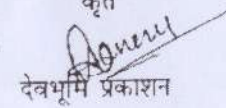 कृते
देवभूमि प्रकाशन